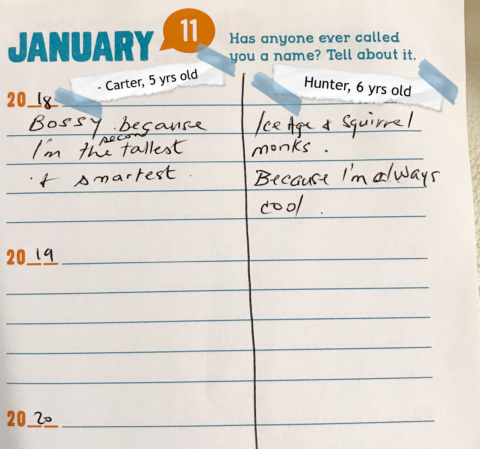 JANUARY 11
Has anyone ever called
you a name? Tell about it.
- Carter, 5 yrs old
Hunter, 6 yrs old
2018
Bossy because
I'm the second tallest
& smartest.
Ice Age & Squirrel
monks.
Because I'm always
cool.
2019
2020